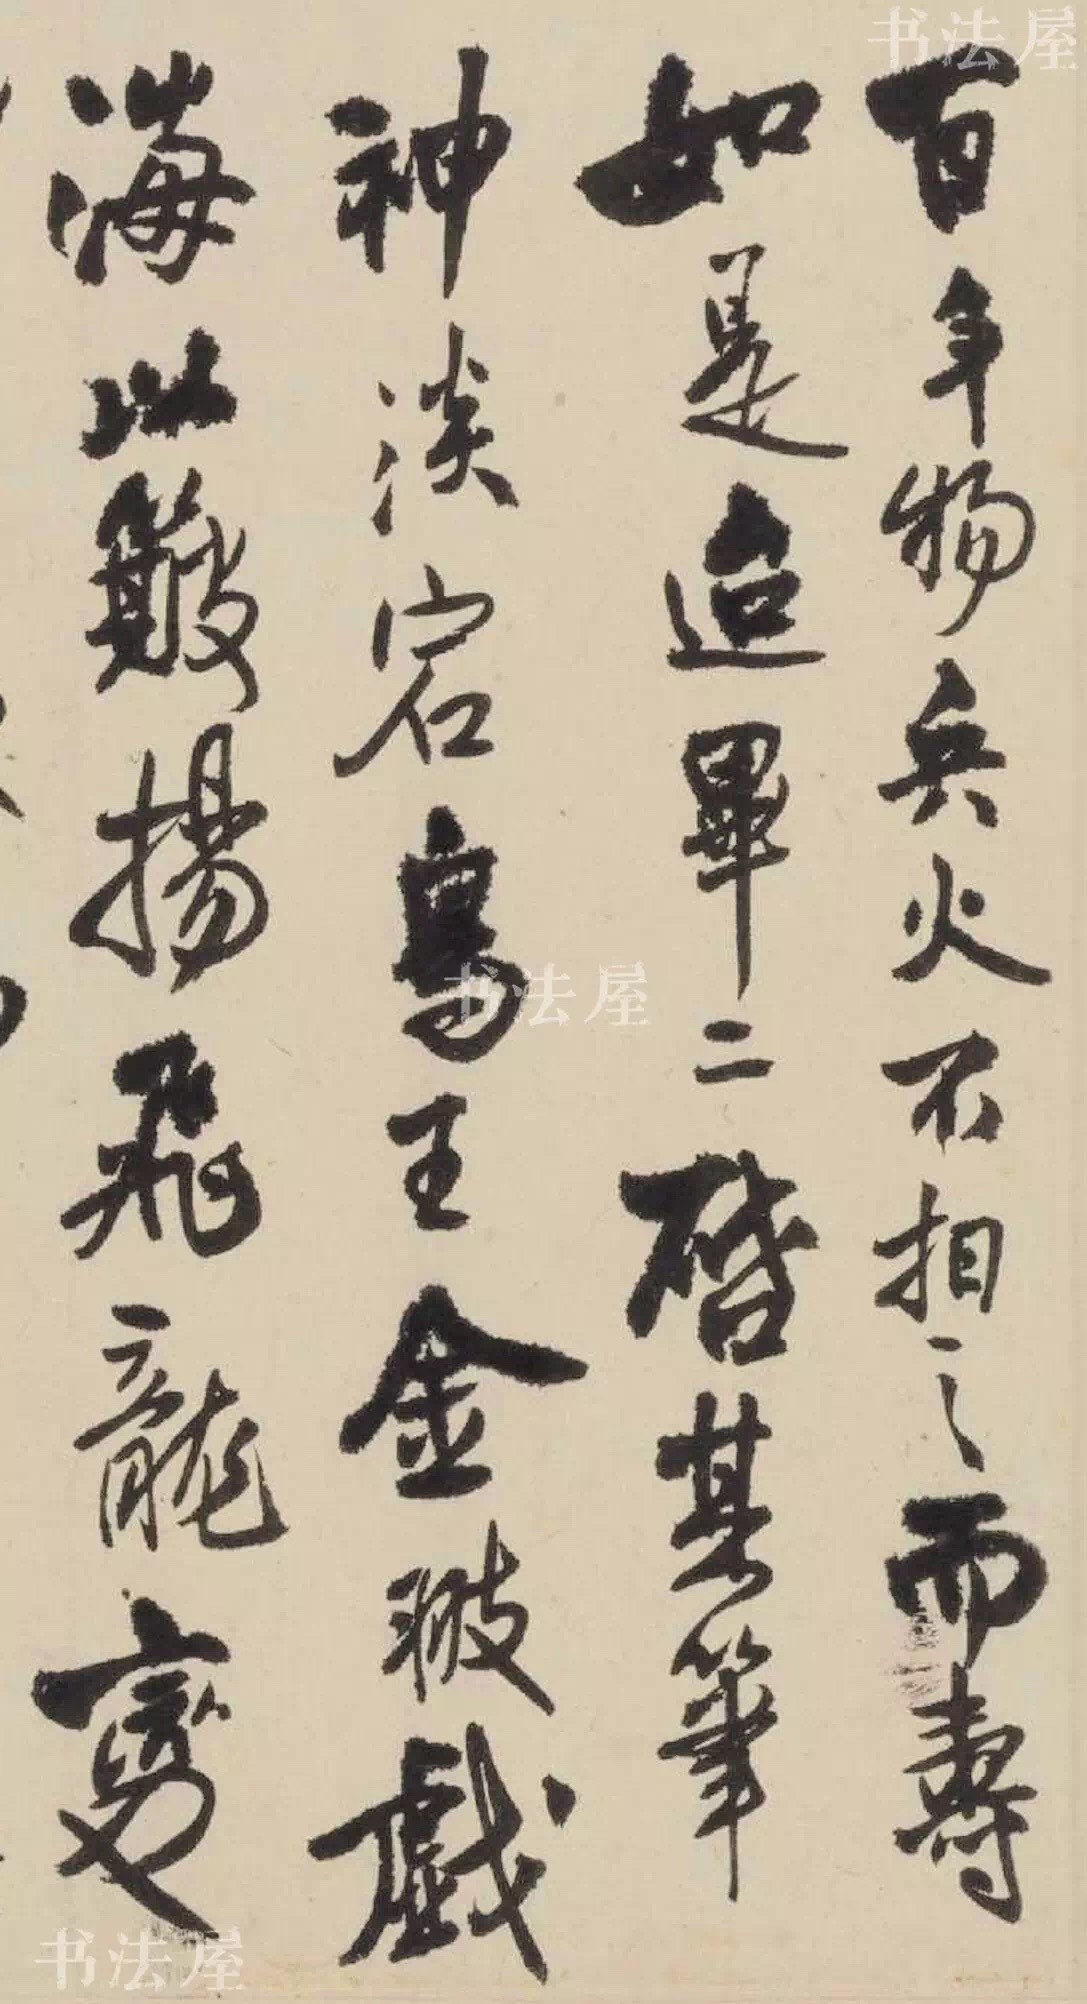 书法屋
百年物兵火不相之而壽
如是迨畢二啓其筆
神淡宕鳥王金翄戲
海以簸揚飛龍變
书法屋
书法屋